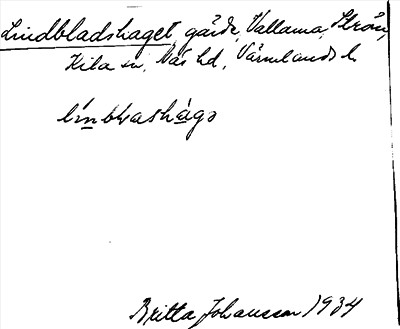 Lindbladshaget, gärde, Vallarna, Strön,
Kila sn, Näs hd, Värmlands l.
línbḷashágə
Britta Johansson 1934